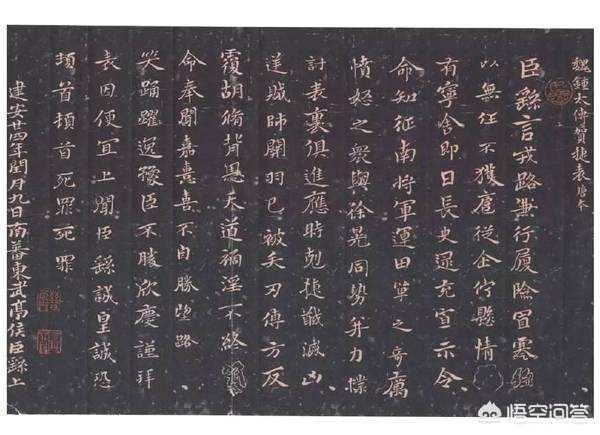 魏鍾太傅賀捷表唐本
臣繇言戎路兼行履險冒寒臣
以無任不獲扈從企佇懸情
有寧舍即日長史逮充宣示令
命知征南將軍運田單之奇厲
憤怒之衆與徐晃同勢并力撲
討表裏俱進應時剋捷馘滅凶
逆賊帥關羽已被矢刃傅方反
覆胡脩背恩天道禍淫不終
命奉聞嘉憙喜不自勝望路
笑踊躍逸豫臣不勝欣慶謹拜
表因便宜上聞臣繇誠皇誠恐
頓首頓首死罪死罪
建安廿四年閏月九日南蕃東武亭侯臣繇上
悟空问答